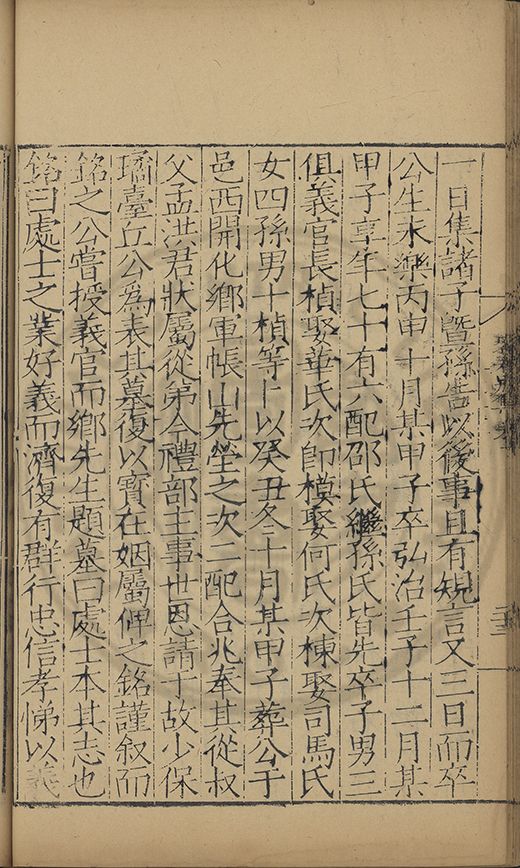 一日集諸子曁孫告以後事且有規言又三日而卒
公生永樂丙申十月某甲子卒弘治壬子十二月某
甲子享年七十有六配邵氏繼孫氏皆先卒子男三
俱義官長楨娶華氏次即模娶何氏次棟娶司馬氏
女四孫男十楨等卜以癸丑冬十月某甲子葬公于
邑西開化鄉軍帳山先塋之次二配合兆奉其從叔
父孟洪君狀屬從弟今禮部主事世恩請于故少保
瓊臺丘公爲表其墓復以寳在姻屬俾之銘謹叙而
銘之公嘗授義官而鄉先生題墓曰處士本其志也
銘曰處士之業好義而濟復有群行忠信孝悌以義